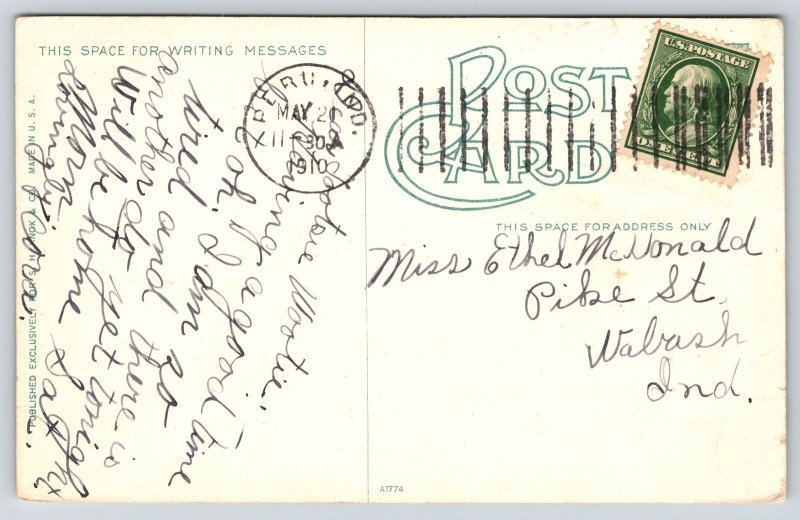 THIS SPACE FOR WRITING MESSAGES
Tootie Wootie,
having a good time
? oh, I am so
tired and there is
another do yet tonight
Will be home Sat.
Morn.
Lovingly
PERU, IND.
MAY 20
11-30A
1910
POST
CARD
U.S. POSTAGE
ONE CENT
THIS SPACE FOR ADDRESS ONLY
Miss Ethel McDonald
Pike St.
Wabash
Ind.
PUBLISHED EXCLUSIVELY FOR S. H. KNOX & CO. MADE IN U. S. A.
A1774